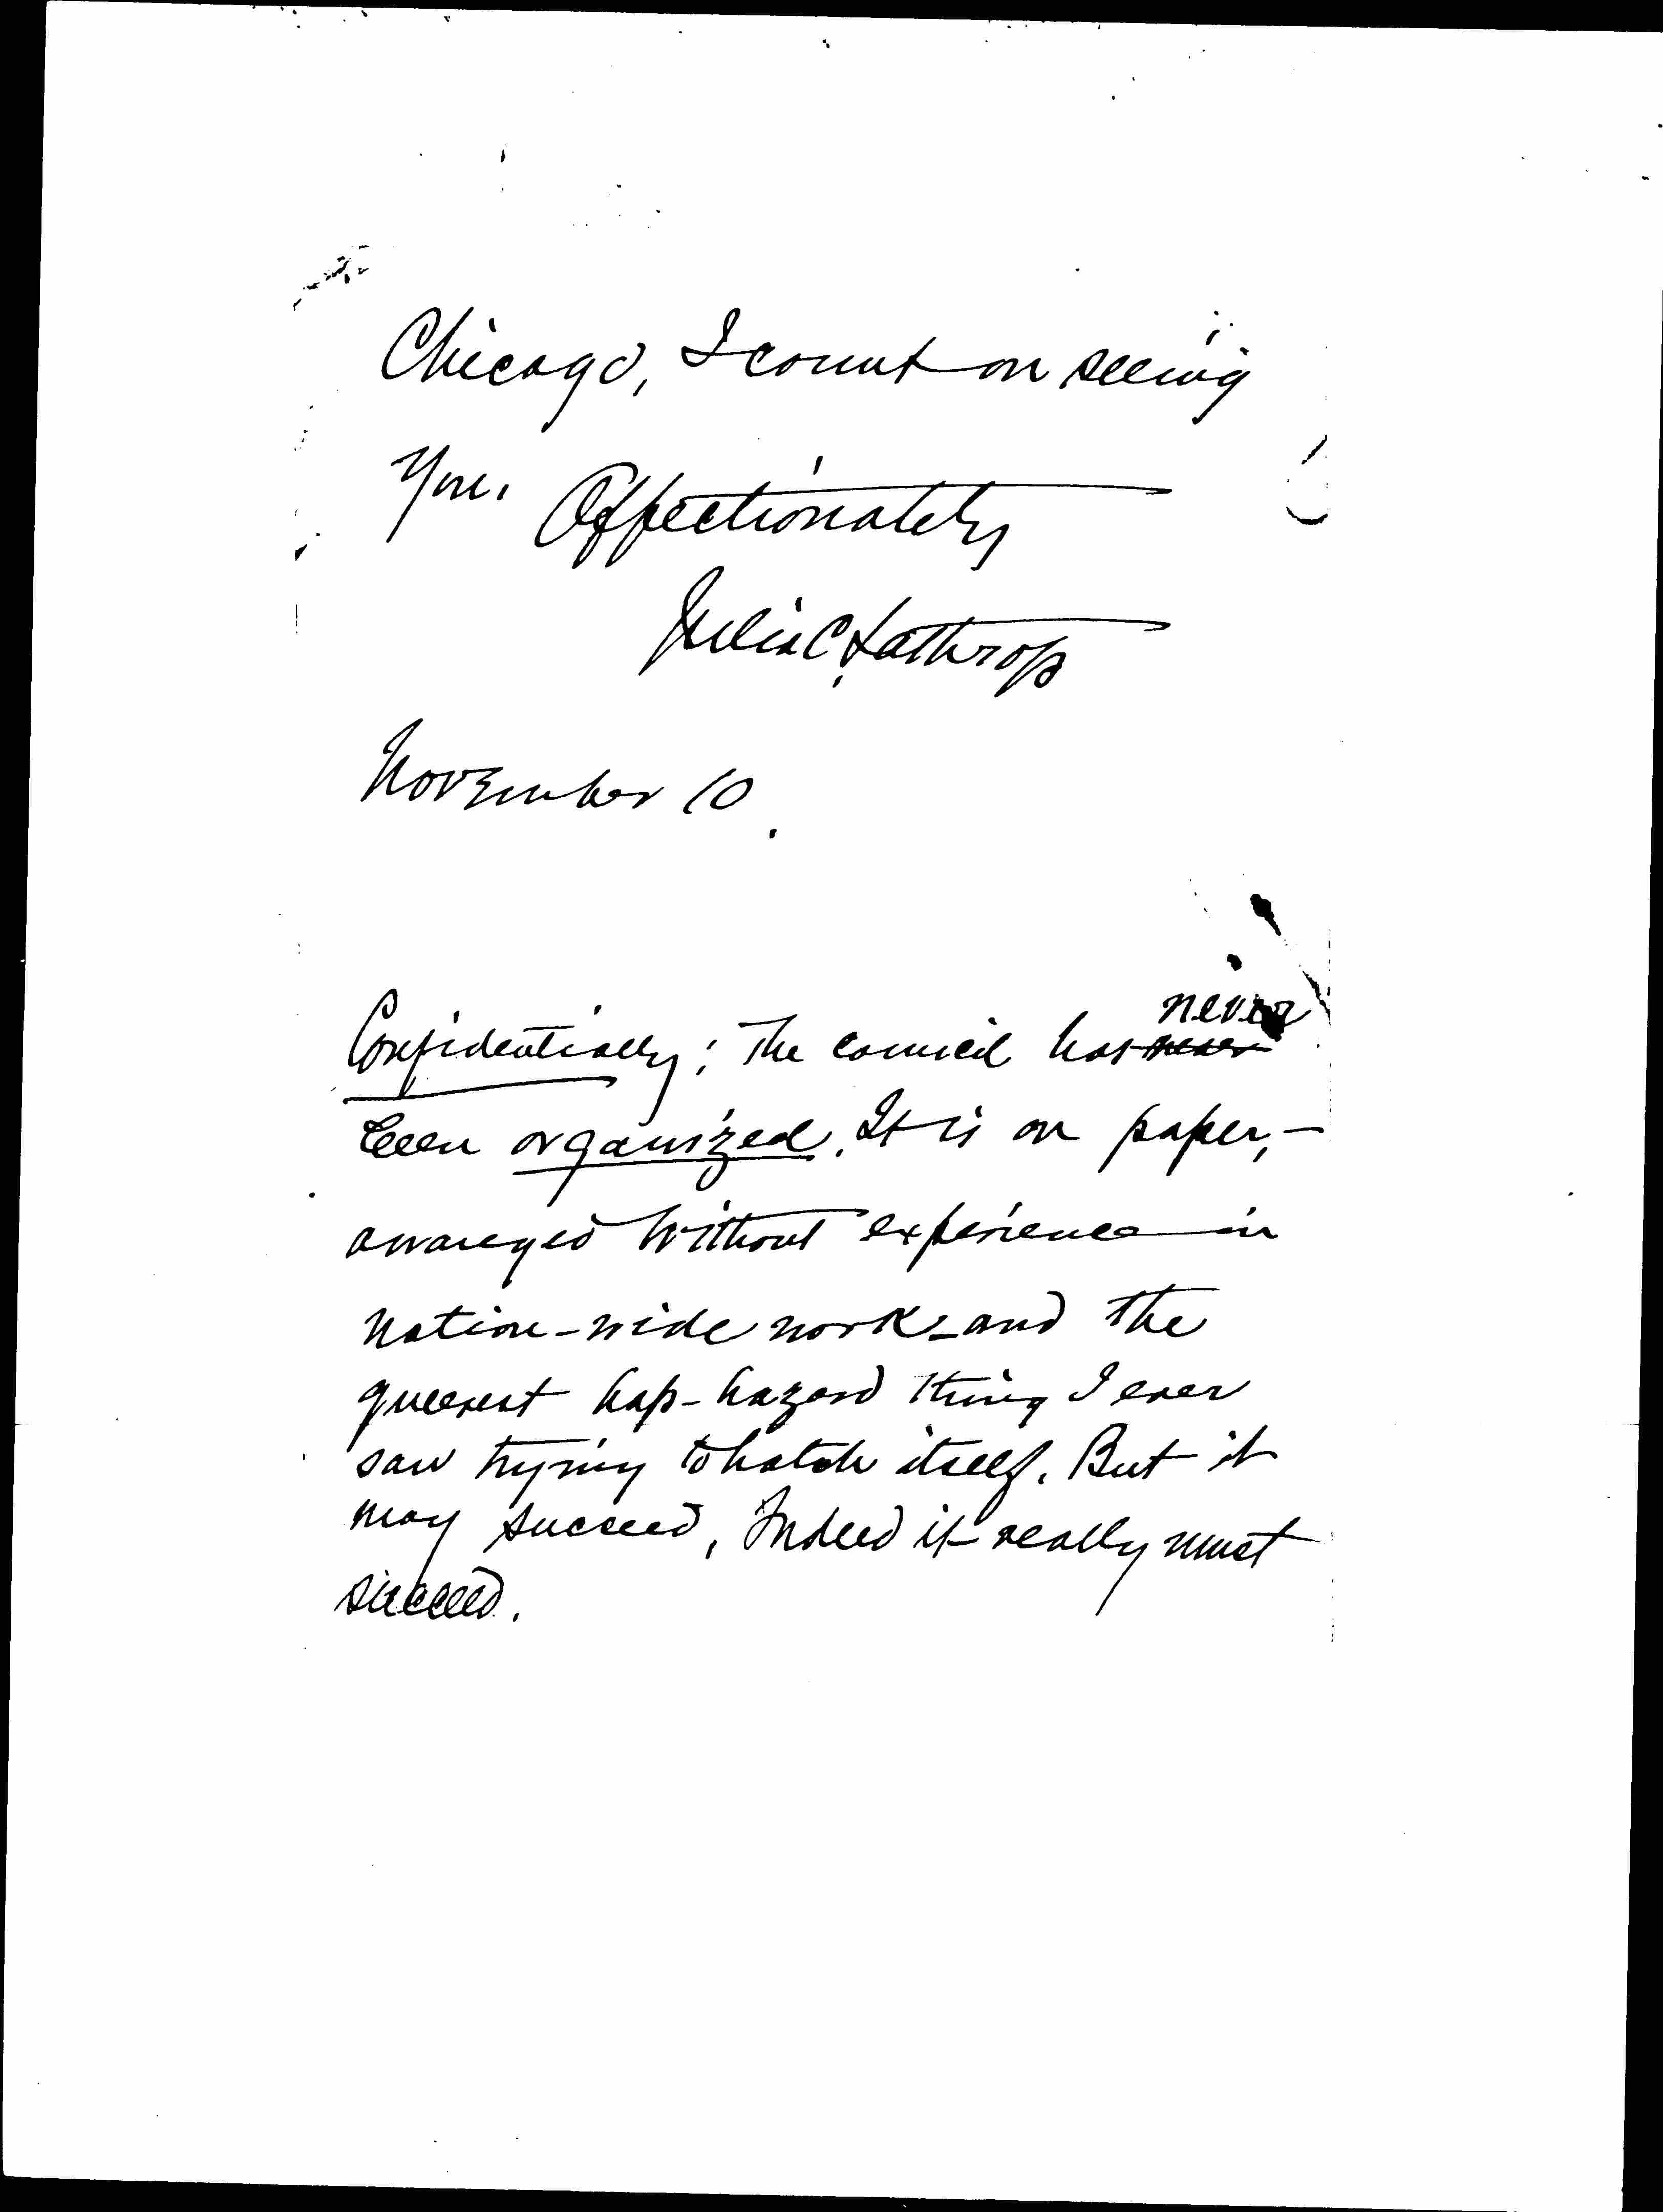 Chicago, I count on seeing
you. Affectionately
Julia C. Lathrop
November 10.
never
Confidentially: The council has never
been organized. It is on paper, -
arranged without experience in
nation-wide work - and the
queerest hap-hazard thing I ever
saw trying to hatch itself. But it
may succeed, Indeed it really must
succeed.